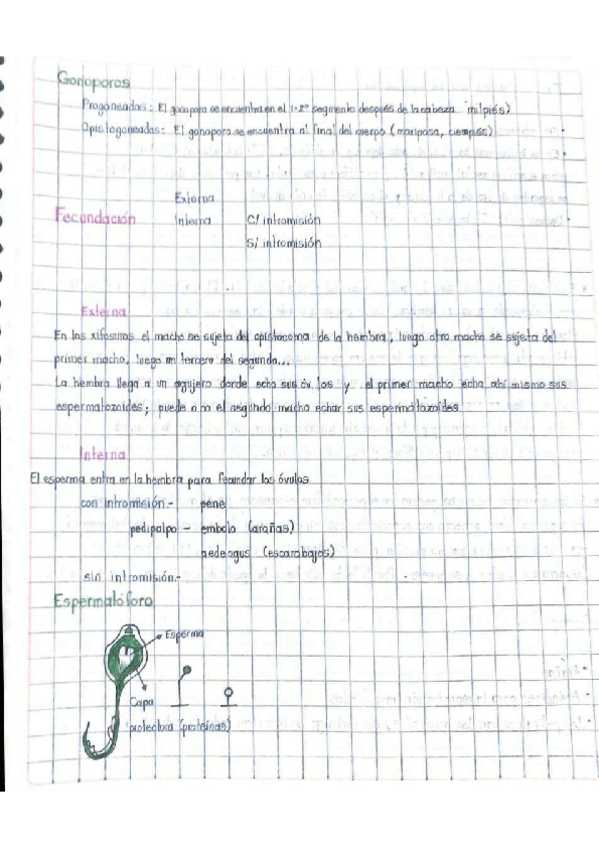 Gonoporos
Progoneados: El gonoporo se encuentra en el 1-2° segmento después de la cabeza (milpiés)
Opistogoneados: El gonoporo se encuentra al final del cuerpo (mariposa, ciempiés)
Externa
Fecundación Interna C/ intromisión
S/ intromisión
Externa
En los xifosuros el macho se sujeta del opistosoma de la hembra, luego otro macho se sujeta del
primer macho, luego un tercero del segundo...
La hembra llega a un agujero donde echa sus óvulos y el primer macho echa ahí mismo sus
espermatozoides; puede o no el segundo macho echar sus espermatozoides
Interna
El esperma entra en la hembra para fecundar los óvulos
con intromisión.- pene
pedipalpo - embolo (arañas)
aedeagus (escarabajos)
sin intromisión.-
Espermatóforo
Esperma
Capa
protectora (proteínas)